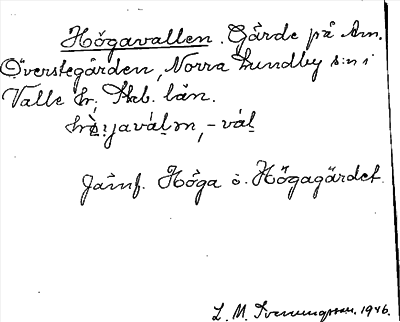 Högavallen. Gärde på Äm.
Överstegården, Norra Lundby s:n i
Valle hr, Skb. län.
-vál
Jämf. Höga o. Högagärdet.
L. M. Svenungsson. 1946.